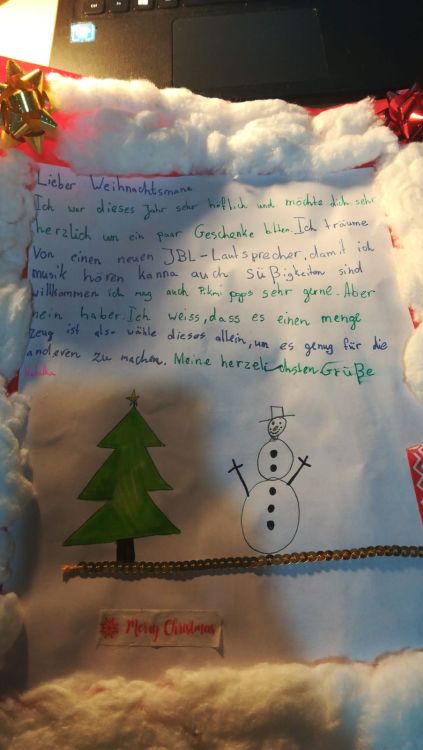 Lieber Weihnachtsmann
Ich war dieses Jahr sehr höflich und möchte dich sehr
herzlich um ein paar Geschenke bitten. Ich träume
von einen neuen JBL-Lautsprecher, damit ich
musik hören kann a auch Süßigkeiten sind
willkommen ich mag auch Pikmi pops sehr gerne. Aber
nein haber. Ich weiss, dass es einen menge
zeug ist also wähle dieses allein, um es genug für die
anderen zu machen. Meine herzelichsten Grüße
Natalka
Merry Christmas